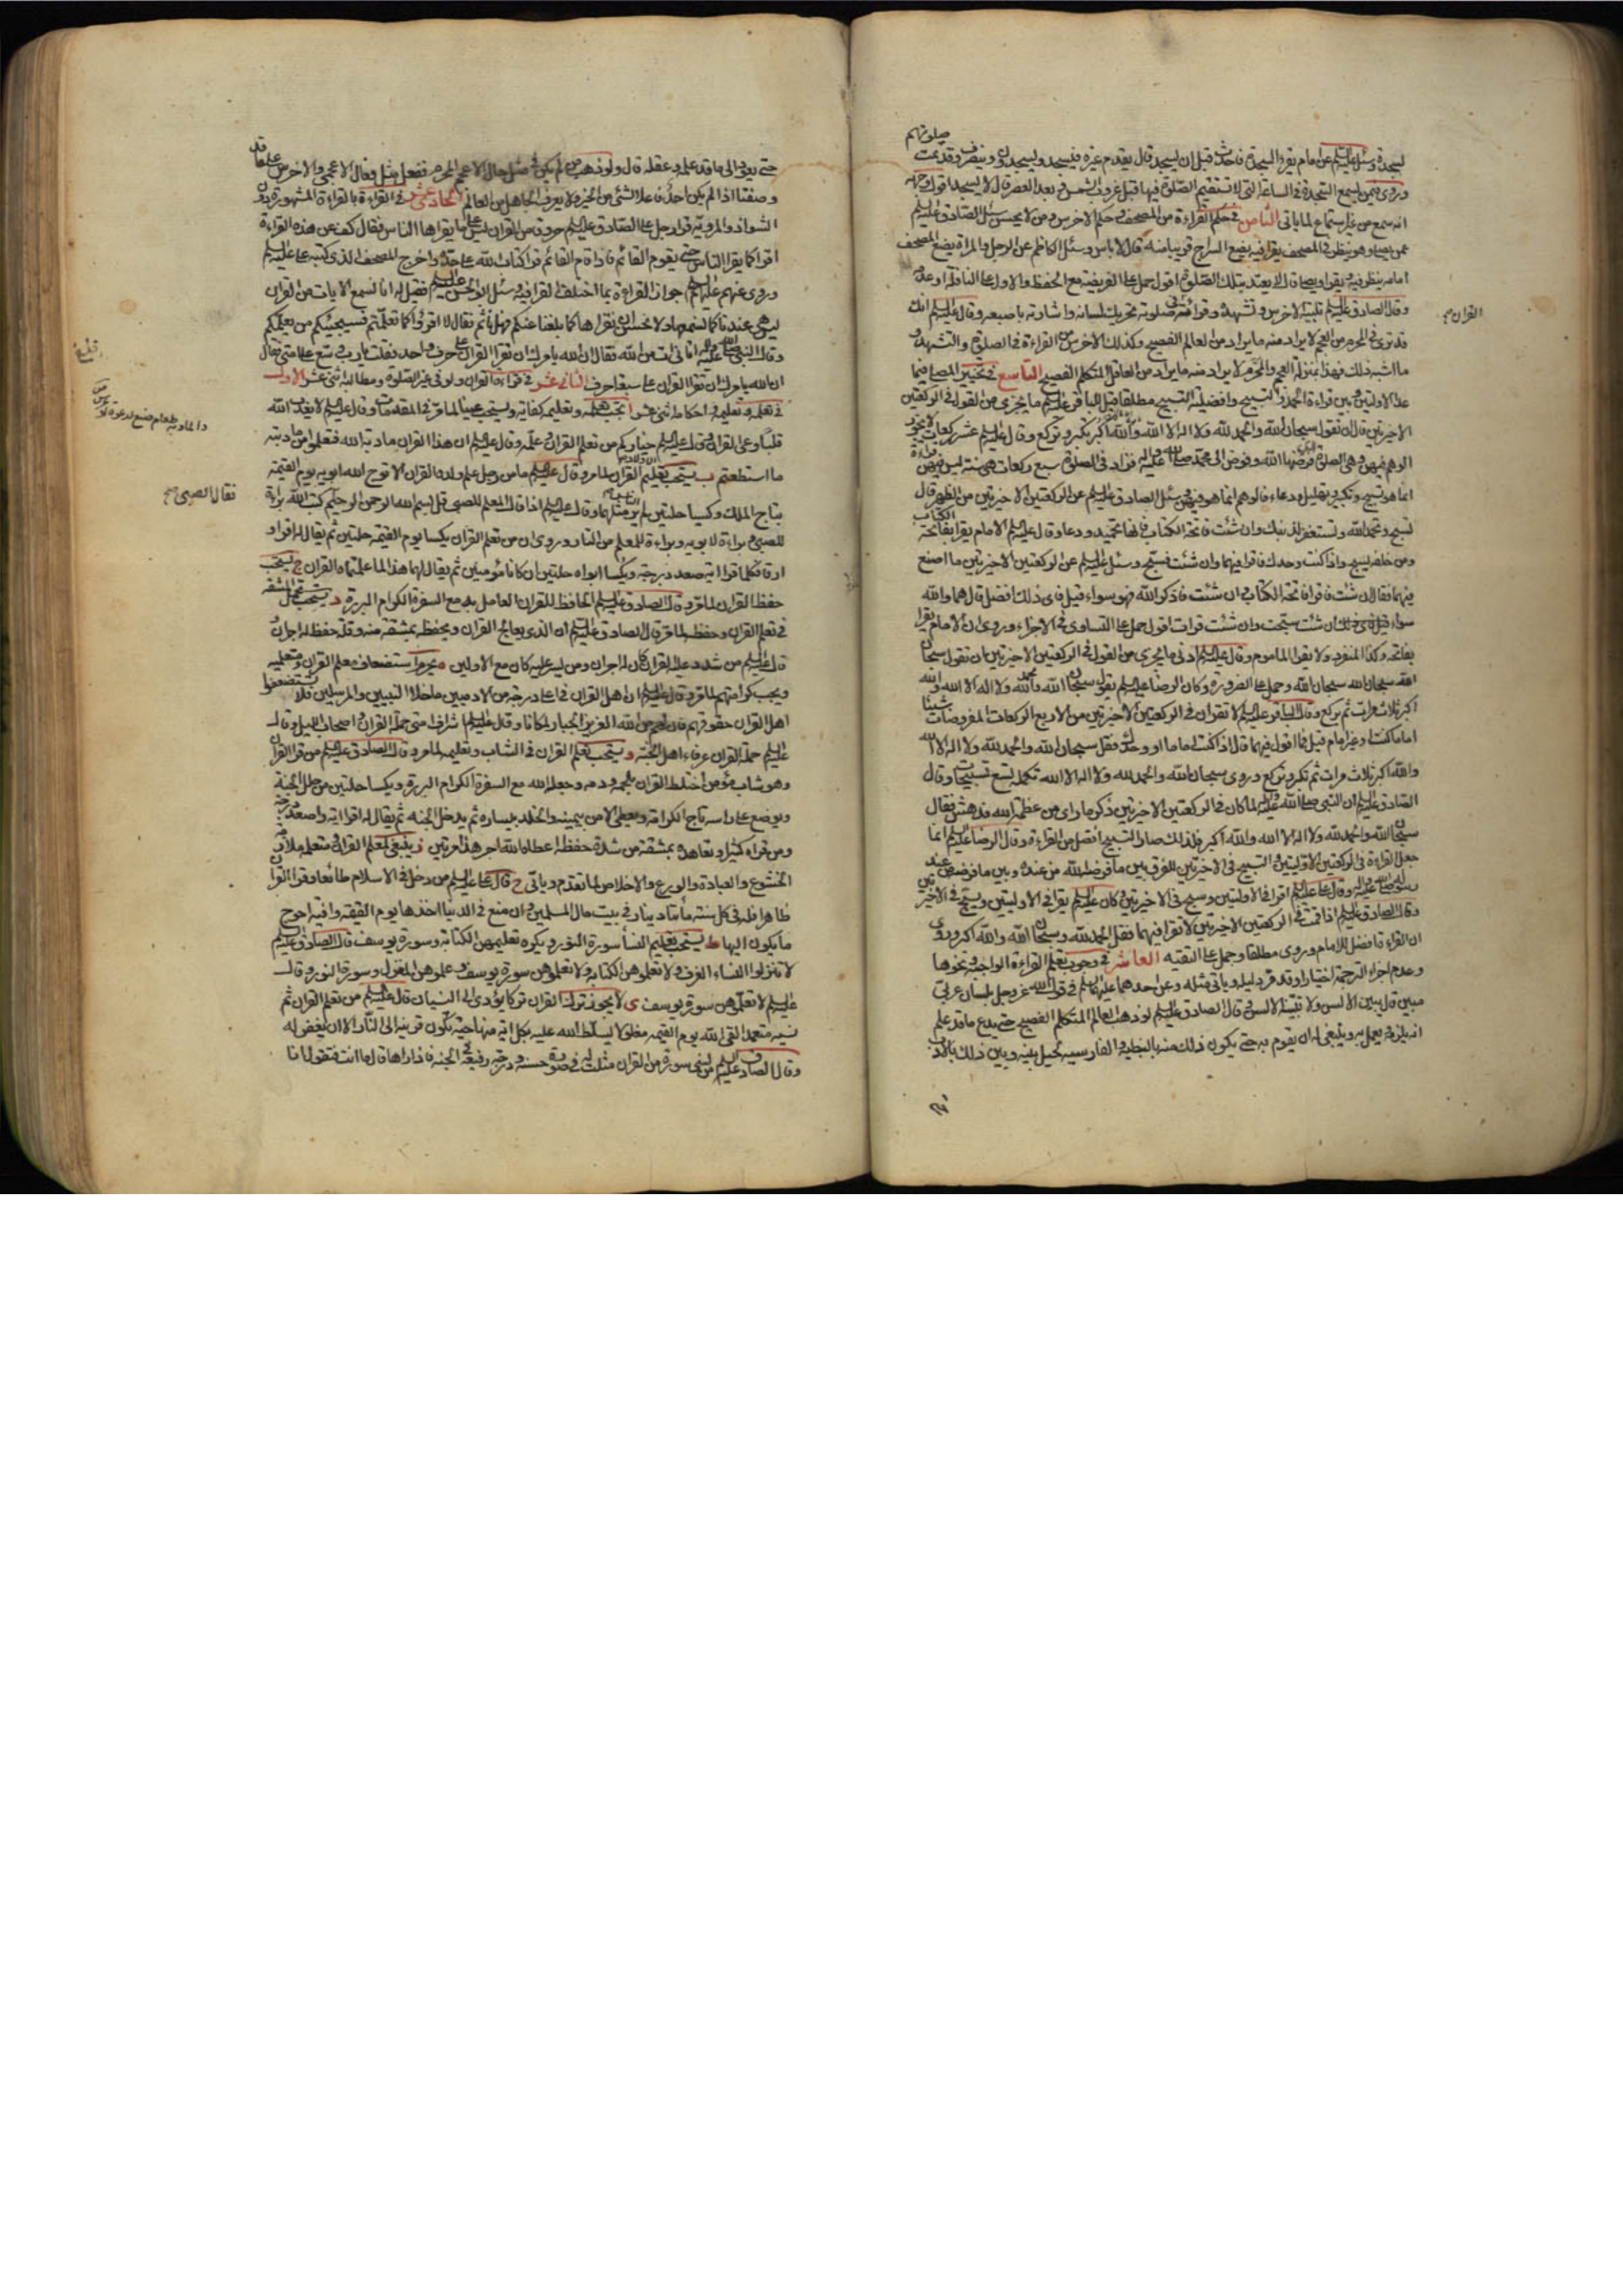 سجدة وسئل عليه السلم عن امام يقرء السجدة فاحدث قبل ان يسجد قال يقدم غيره فيسجد ويسجدون وينصرف وقد تمت صلوتهم
وروى فيمن يسمع السجدة في الساعة التي لا تستقيم الصلوة فيها قبل غروب الشمس وبعد العصر قال لا يسجد اقول
انه سمع من غير استماع لما ياتى الثامن في حكم القراءة من المصحف وحكم الاخرس ومن لا يحسن سئل الصادق عليه السلم
عمن يصلى وهو ينظر في المصحف يقرا فيه يضع السراج قريبا منه قال لا باس وسئل الكاظم عن الرجل والمراة يضع المصحف
امامه ينظر فيه ويقرا ويصلى قال لا يعتد بتلك الصلوة اقول حمل على الفريضة مع الحفظ والاول على النافلة او عدمه
وقال الصادق عليه السلم تلبية الاخرس وتشهده وقرائته القران في صلوته تحريك لسانه واشارته باصبعه وقال عليه السلم انك
قد ترى في المحرم من العجم لا يراد منه ما يراد من العالم الفصيح وكذلك الاخرس في القراءة في الصلوة والتشهد و
ما اشبه ذلك فهذا بمنزلة العجم والمحرم لا يراد منه ما يراد من العاقل المتكلم الفصيح التاسع في تخيير المصلى فيما
عدا الاولتين بين قراءة الحمد والتسبيح وافضلية التسبيح مطلقا قيل للباقر عليه السلم ما يجزى من القول في الركعتين
الاخيرتين قال ان تقول سبحان الله والحمد لله ولا اله الا الله والله اكبر وتكبر وتركع وقال عليه السلم عشر ركعات لا يجوز
الوهم فيهن وهى الصلوة التى فرضها الله وفوض الى محمد صلى الله عليه واله فزاد في الصلوة سبع ركعات هى سنة ليس فيهن قراءة
انما هو تسبيح وتكبير وتهليل ودعاء فالوهم انما هو فيهن وسئل الصادق عليه السلم عن الركعتين الاخيرتين من الظهر قال
تسبح وتحمد الله وتستغفر لذنبك وان شئت فاتحة الكتاب فانها تحميد ودعا وقال عليه السلم الامام يقرا بفاتحة الكتاب
ومن خلفه يسبح واذا كنت وحدك فاقرا فيهما وان شئت فسبح وسئل عليه السلم عن الركعتين الاخيرتين ما اصنع
فيهما فقال ان شئت فاقرا فاتحة الكتاب وان شئت فاذكر الله فهو سواء قيل فاى ذلك افضل قال هما والله
سواء ان شئت سبحت وان شئت قرات اقول حمل على التساوى في الاجزاء وروى ان الامام يقرا
بفاتحة وكذا المنفرد ولا يقرا الماموم وقال عليه السلم ادنى ما يجزى من القول في الركعتين الاخيرتين ان تقول سبحان
الله سبحان الله سبحان الله وحمل على الضرورة وكان الرضا عليه السلم يقول سبحان الله والحمد لله ولا اله الا الله والله
اكبر ثلاث مرات ثم يركع وقال الباقر عليه السلم لا تقران في الركعتين الاخيرتين من الاربع الركعات المفروضات شيئا
اماما كنت او غير امام قيل فما اقول فيهما قال اذا كنت اماما او وحدك فقل سبحان الله والحمد لله ولا اله الا الله
والله اكبر ثلاث مرات ثم تكبر وتركع وروى سبحان الله والحمد لله ولا اله الا الله تكمله تسع تسبيحات وقال
الصادق عليه السلم ان النبى صلى الله عليه واله لما كان في الركعتين الاخيرتين ذكر ما راى من عظمة الله فدهش فقال
سبحان الله والحمد لله ولا اله الا الله والله اكبر فلذلك صار التسبيح افضل من القراءة وقال الرضا عليه السلم انما
جعل القراءة في الركعتين الاولتين والتسبيح في الاخيرتين للفرق بين ما فرضه الله من عنده وبين ما فرضه من عند
رسوله صلى الله عليه واله وقال على عليه السلم اقرا في الاولتين وسبح في الاخيرتين وكان عليه السلم يقرا في الاوليتين ويسبح في الاخيرتين
وقال الصادق عليه السلم اذا قمت في الركعتين الاخيرتين لا تقرا فيهما فقل الحمد لله وسبحان الله والله اكبر وروى
ان القراءة افضل للامام وروى مطلقا وحمل على التقية العاشر في وجوب تعلم القراءة الواجبة ونحوها
وعدم اجزاء الترجمة اختيارا وقد مر دليله وياتى مثله وعن احدهما عليهما السلم في قول الله عز وجل بلسان عربى
مبين قال يبين الالسن ولا تبينه الالسن وقال الصادق عليه السلم لو ذهب العالم المتكلم الفصيح حتى يدع ما قد علم
انه يلزمه يعمل به وينبغى له ان يقوم به حتى يكون ذلك منه بالنبطية والفارسية لحيل بينه وبين ذلك بالادب
القران صح
حتى يعود الى ما قد علمه وعقله قال ولو ذهب من لم يكن في مثل حال الاعجم المحرم ففعل مثل فعال الاعجمى والاخرس على ما قد
وصفنا اذا لم يكن احد فاعلا لشئ من الخير ولا يعرف الجاهل من العالم الحادى عشر في القراءة بالقراءة المشهورة دون
الشواذ والمروية قرا رجل على الصادق عليه السلم حروفا من القران ليس على ما يقراها الناس فقال كف عن هذه القراءة
اقرا كما يقرا الناس حتى يقوم القائم فاذا قام القائم قرا كتاب الله على حده واخرج المصحف الذى كتبه على عليه السلم
وروى عنهم عليهم السلم جواز القراءة بما اختلف القرا فيه وسئل ابو الحسن عليه السلم فقيل له انا نسمع الايات من القران
ليس هى عندنا كما نسمعها ولا نحسن ان نقراها كما بلغنا عنكم فهل ناثم فقال لا اقرؤا كما تعلمتم فسيجيئكم من يعلمكم
وقال النبى صلى الله عليه واله اتانى ات من الله فقال ان الله يامرك ان تقرا القران على حرف واحد فقلت يا رب وسع على امتى فقال
ان الله يامرك ان تقرا القران على سبعة احرف الثانى عشر في قراءة القران ولو في غير الصلوة ومطالبه اثنى عشر الاول
في تعلمه وتعليمه واحكامه اثنى عشر ا يجب تعلمه وتعليمه كفاية ويستحب عينا لما مر في المقدمات وقال عليه السلم لا يعذب الله
قلبا وعى القران وقال عليه السلم خياركم من تعلم القران وعلمه وقال عليه السلم ان هذا القران مادبة الله فتعلموا من مادبته
ما استطعتم ب يستحب تعليم الاولاد القران لما مر وقال عليه السلم ما من رجل علم ولده القران الا توج الله ابويه يوم القيمة
بتاج الملك وكسيا حلتين لم ير الناس مثلهما وقال عليه السلم اذا قال المعلم للصبى قل بسم الله الرحمن الرحيم كتب الله براءة
للصبى وبراءة لابويه وبراءة للمعلم من النار وروى ان من تعلم القران يكسا يوم القيمة حلتين ثم يقال له اقرا و
ارق فكلما قرا اية صعد درجة ويكسا ابواه حلتين ان كانا مؤمنين ثم يقال لهما هذا لما علمتماه القران ج يستحب
حفظ القران لما مر وقال الصادق عليه السلم الحافظ للقران العامل به مع السفرة الكرام البررة د يستحب تحمل المشقة
في تعلم القران وحفظه لما مر قال الصادق عليه السلم ان الذى يعالج القران ويحفظه بمشقة منه وقلة حفظ له اجران
قال عليه السلم من شدد عليه القران كان له اجران ومن يسر عليه كان مع الاولين ه يحرم استضعاف معلم القران ومتعلميه
ويجب كرامتهم لما مر وقال عليه السلم ان اهل القران في اعلى درجة من الادميين ما خلا النبيين والمرسلين فلا تستضعفوا
اهل القران حقوقهم فان لهم من الله العزيز الجبار لمكانا وقال عليه السلم اشراف امتى حملة القران واصحاب الليل وقال
عليه السلم حملة القران عرفاء اهل الجنة و يستحب تعلم القران في الشباب وتعليمه لما مر وقال الصادق عليه السلم من قرا القران
وهو شاب مؤمن اختلط القران بلحمه ودمه وجعله الله مع السفرة الكرام البررة ويكسا حلتين من حلل الجنة
ويوضع على راسه تاج الكرامة ويعطى الامن بيمينه والخلد بيساره ثم يدخل الجنة ثم يقال له اقرا اية واصعد درجة
ومن قراه كثيرا وتعاهده بمشقة من شدة حفظه اعطاه الله اجر هذا مرتين ز ينبغى لمعلم القران ومتعلمه ملازمة
الخشوع والعبادة والورع والاخلاص لما تقدم وياتى ح قال على عليه السلم من دخل في الاسلام طائعا وقرا القران
ظاهرا فله في كل سنة مأتا دينار في بيت مال المسلمين وان منع في الدنيا اخذها يوم القيمة وافية احوج
ما يكون اليها ط يستحب تعليم النسا سورة النور ويكره تعليمهن الكتابة وسورة يوسف قال الصادق عليه السلم
لا تنزلوا النساء الغرف ولا تعلموهن الكتابة ولا تعلموهن سورة يوسف وعلموهن المغزل وسورة النور وقال
عليه السلم لا تعلموهن سورة يوسف ى لا يجوز ترك القران تركا يؤدى الى النسيان قال عليه السلم من تعلم القران ثم
نسيه متعمدا لقى الله يوم القيمة مغلولا يسلط الله عليه بكل اية منها حية تكون قرينه الى النار الا ان يغفر له
وقال الصادق عليه السلم من نسى سورة من القران مثلت له في صورة حسنة ودرجة رفيعة في الجنة فاذا راها قال ما انت فتقول انا
والمادبة طعام صنع لدعوة او عرس
فقال الصبى صح